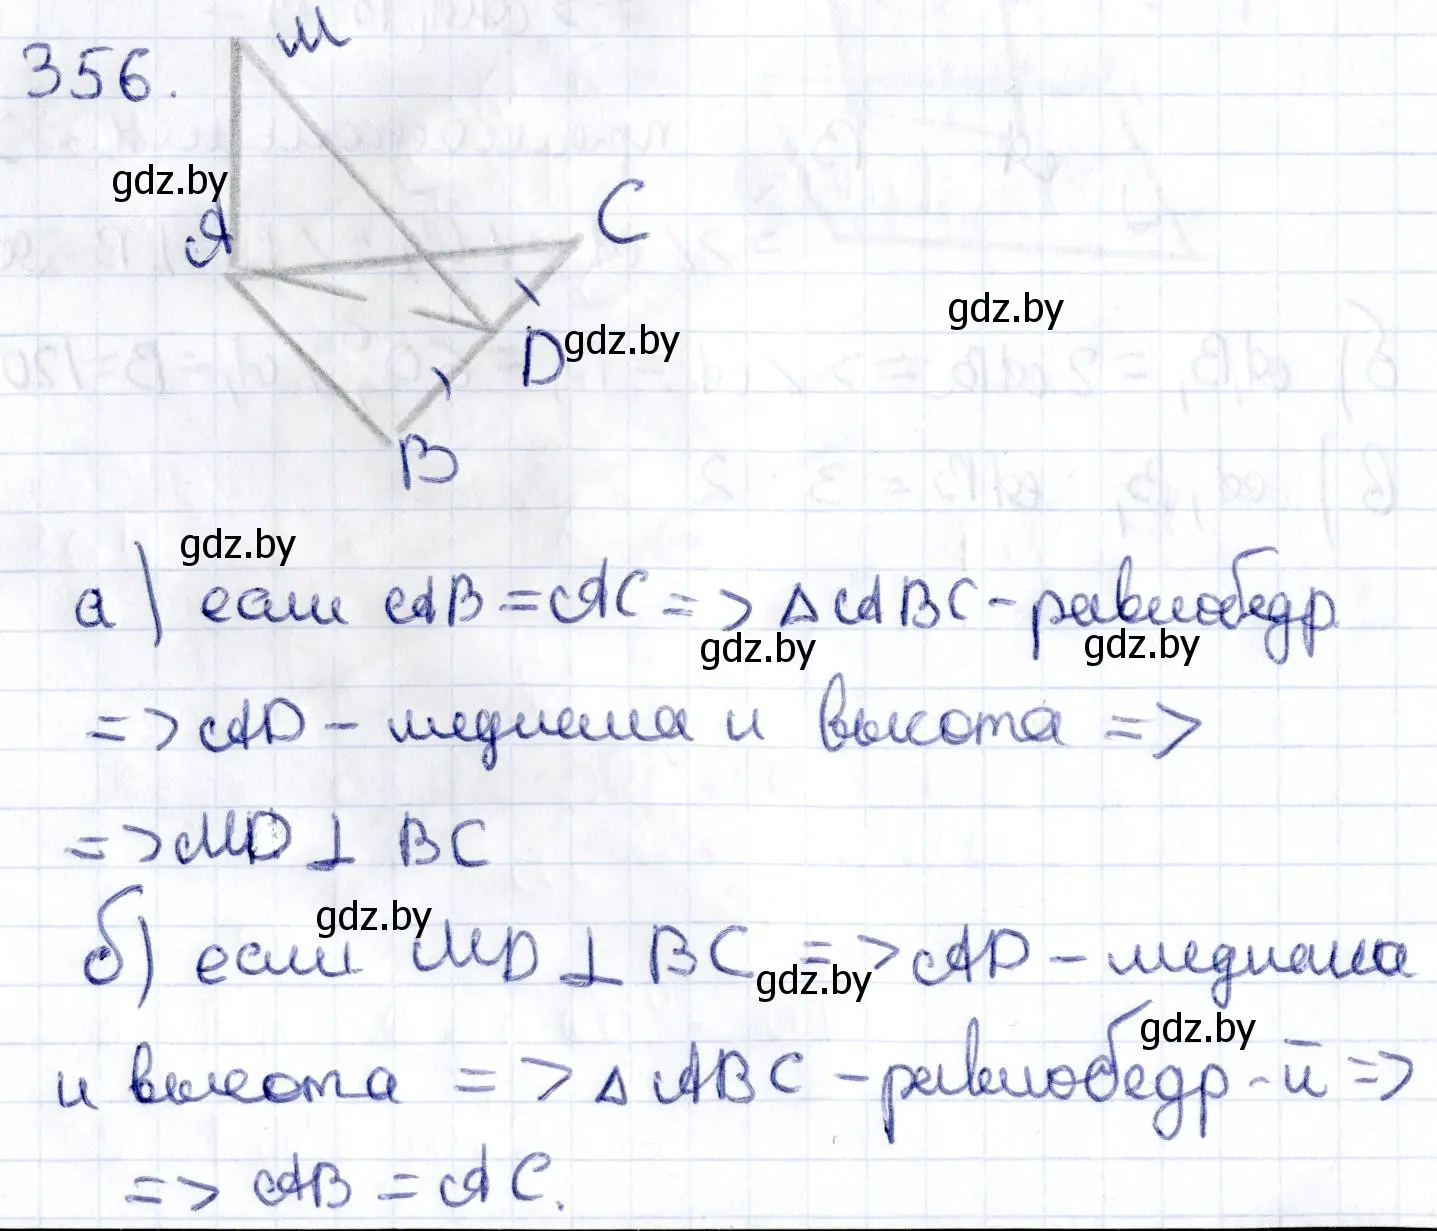 356.
M
gdz.by
A
C
gdz.by
D
gdz.by
B
gdz.by
а) если AB = AC => △ABC - равнобедр
gdz.by
gdz.by
=> AD - медиана и высота =>
=> MD ⊥ BC
gdz.by
б) если MD ⊥ BC => AD - медиана
gdz.by
gdz.by
и высота => △ABC - равнобедр-й =>
=> AB = AC.